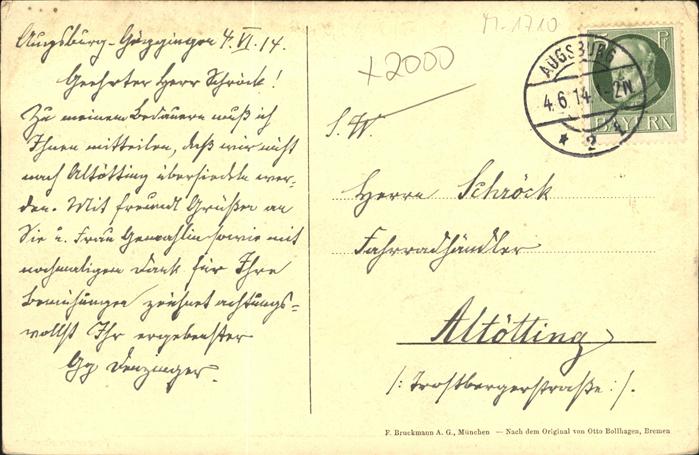 Augsburg-Göggingen 4.VI.14.
Geehrter Herr Schröck!
Zu meinem Bedauern muß ich
Ihnen mitteilen, daß wir nicht
nach Altötting übersiedeln wer-
den. Mit freundl Grüßen an
Sie u. Frau Gemahlin sowie mit
nochmaligen Dank für Ihre
Bemühungen zeichnet achtungs-
vollst Ihr ergebenster
Gg Denzinger.
M-1710
x2000
S. W.
AUGSBURG
4.6.14 -2N
* 2
5 Pf
BAYERN
Herrn Schröck
Fahrradhändler
Altötting
/: Trostbergerstraße :/.
F. Bruckmann A. G., München — Nach dem Original von Otto Bollhagen, Bremen